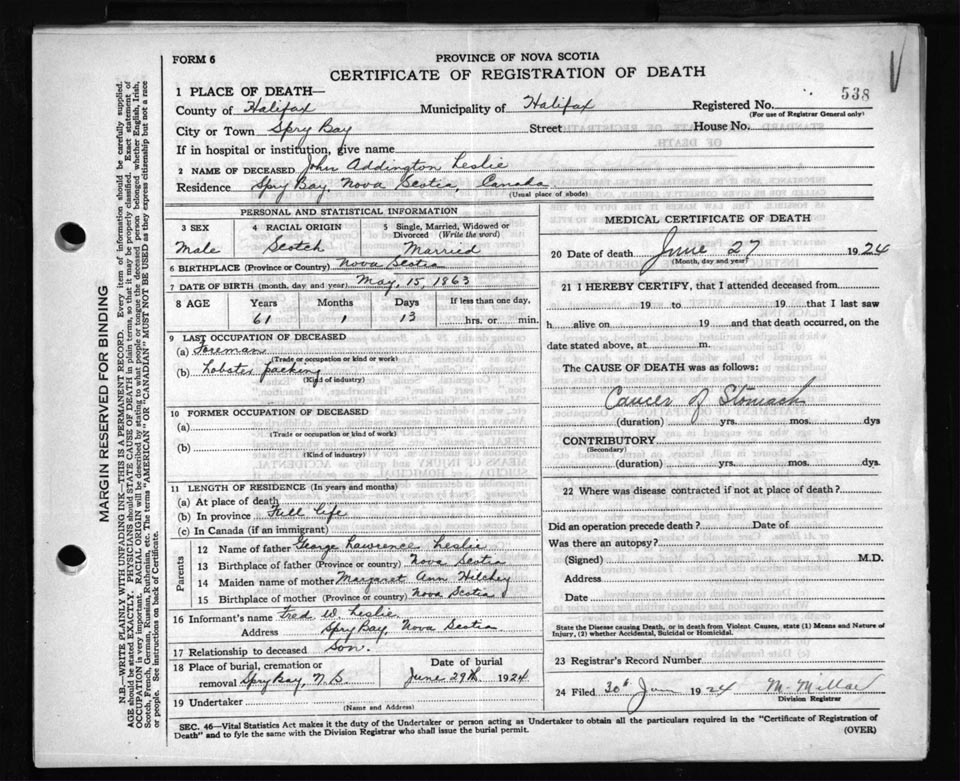 FORM 6
PROVINCE OF NOVA SCOTIA
CERTIFICATE OF REGISTRATION OF DEATH
538
1 PLACE OF DEATH—
County of Halifax Municipality of Halifax Registered No.
(For use of Registrar General only)
City or Town Spry Bay Street House No.
If in hospital or institution, give name
2 NAME OF DECEASED John Addington Leslie
Residence Spry Bay, Nova Scotia, Canada
(Usual place of abode)
PERSONAL AND STATISTICAL INFORMATION
3 SEX 4 RACIAL ORIGIN 5 Single, Married, Widowed or Divorced (Write the word)
Male Scotch Married
6 BIRTHPLACE (Province or Country) Nova Scotia
7 DATE OF BIRTH (month, day and year) May, 15, 1863
8 AGE Years Months Days If less than one day,
61 1 13 hrs. or min.
9 LAST OCCUPATION OF DECEASED
(a) Foreman
(Trade or occupation or kind of work)
(b) Lobster packing
(Kind of industry)
10 FORMER OCCUPATION OF DECEASED
(a)
(Trade or occupation or kind of work)
(b)
(Kind of industry)
11 LENGTH OF RESIDENCE (In years and months)
(a) At place of death
(b) In province Full life
(c) In Canada (if an immigrant)
Parents
12 Name of father George Lawrence Leslie
13 Birthplace of father (Province or country) Nova Scotia
14 Maiden name of mother Margaret Ann Hilchey
15 Birthplace of mother (Province or country) Nova Scotia
16 Informant's name Fred W. Leslie
Address Spry Bay, Nova Scotia
17 Relationship to deceased Son.
18 Place of burial, cremation or removal Spry Bay, N.S. Date of burial June 29th, 1924
19 Undertaker
(Name and Address)
MEDICAL CERTIFICATE OF DEATH
20 Date of death June 27 1924
(Month, day and year)
21 I HEREBY CERTIFY, that I attended deceased from
19 to 19 that I last saw
h alive on 19 and that death occurred, on the
date stated above, at m.
The CAUSE OF DEATH was as follows:
Cancer of Stomach
(duration) yrs. mos. dys
CONTRIBUTORY
(Secondary)
(duration) yrs. mos. dys.
22 Where was disease contracted if not at place of death?
Did an operation precede death? Date of
Was there an autopsy?
(Signed) M.D.
Address
Date
State the Disease causing Death, or in death from Violent Causes, state (1) Means and Nature of
Injury, (2) whether Accidental, Suicidal or Homicidal.
23 Registrar's Record Number
24 Filed 30th 1924
Division Registrar
SEC. 46—Vital Statistics Act makes it the duty of the Undertaker or person acting as Undertaker to obtain all the particulars required in the "Certificate of Registration of
Death" and to fyle the same with the Division Registrar who shall issue the burial permit. (OVER)
MARGIN RESERVED FOR BINDING
N.B.—WRITE PLAINLY WITH UNFADING INK—THIS IS A PERMANENT RECORD. Every item of information should be carefully supplied.
AGE should be stated EXACTLY. PHYSICIANS should STATE CAUSE OF DEATH in plain terms, so that it may be properly classified. Exact statement of
OCCUPATION is very important. RACIAL ORIGIN will be described by stating to what people or tongue the deceased person belonged whether English, Irish,
Scotch, French, German, Russian, Ruthenian, etc. The terms "AMERICAN" or "CANADIAN" MUST NOT BE USED as they express citizenship but not a race
or people. See instructions on back of Certificate.